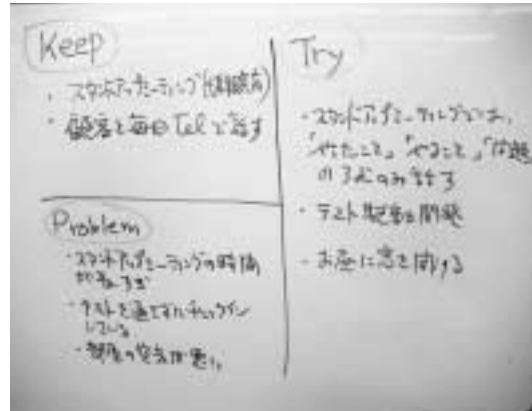 Keep
・スタンドアップミーティング
・顧客と毎日Telで話す
Problem
・スタンドアップミーティングの時間
が長すぎ
・テストを通さずにチェックイン
している
・部屋の空気が悪い。
Try
・スタンドアップミーティングでは、
「やったこと」「やること」「問題
の3点のみ話す
・テスト駆動開発
・お昼に窓を開ける